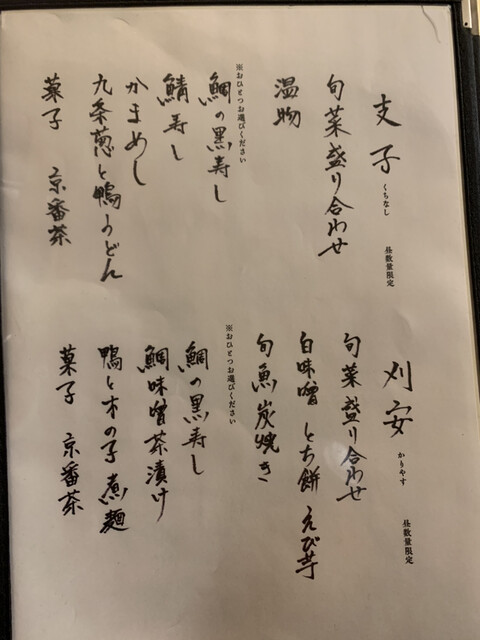 支子 くちなし 昼数量限定
旬菜盛り合わせ
温物
※おひとつお選びください
鯛の黒寿し
鯖寿し
かまめし
九条葱と鴨うどん
菓子 京番茶
刈安 かりやす 昼数量限定
旬菜盛り合わせ
白味噌 とち餅 えび芋
旬魚炭焼き
※おひとつお選びください
鯛の黒寿し
鯛味噌茶漬け
鴨と木の子煮麺
菓子 京番茶